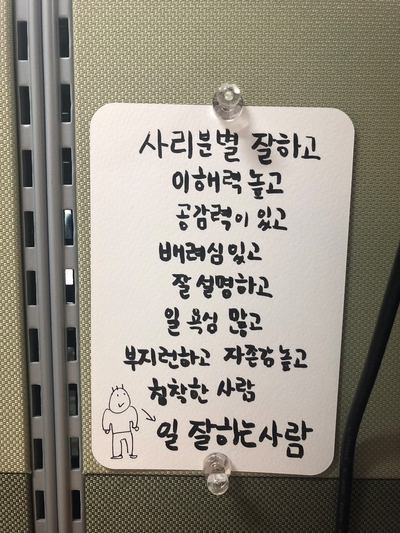 사리분별 잘하고
이해력 높고
공감력이 있고
배려심 있고
잘 설명하고
일 욕심 많고
부지런하고 자존감 높고
침착한 사람
일 잘하는 사람